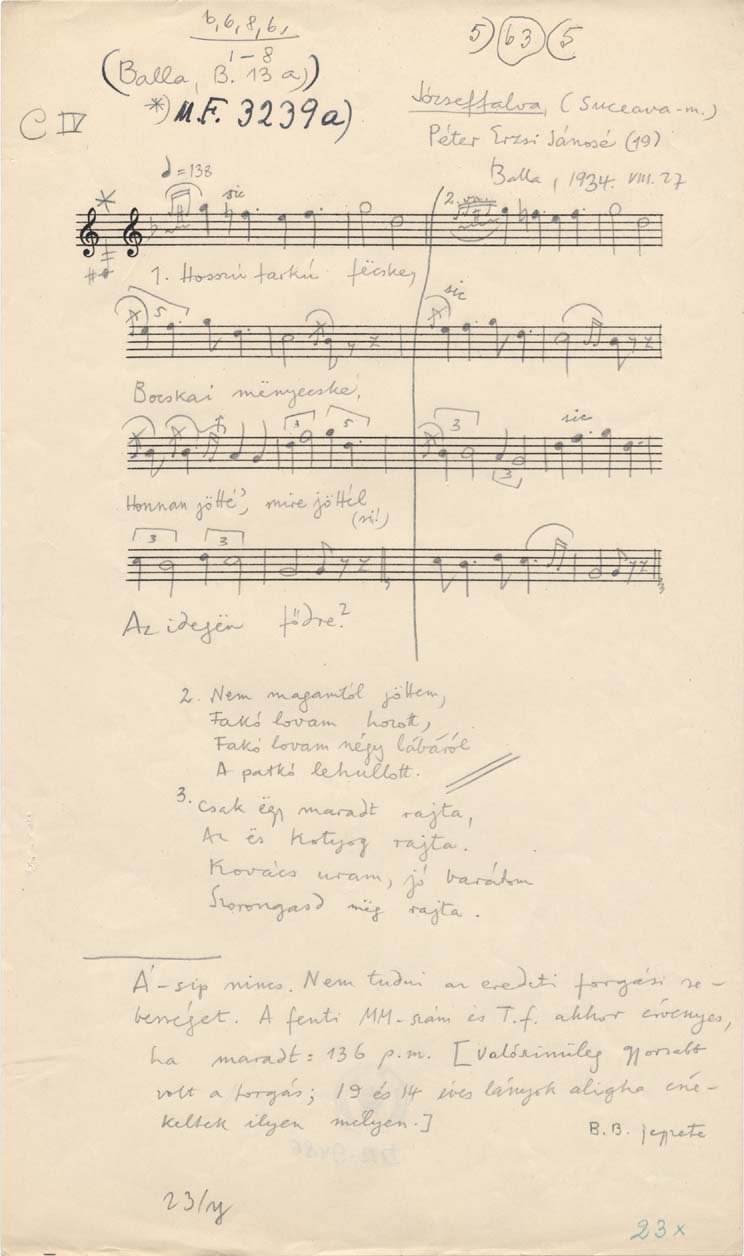 6, 6, 8, 6,
1-8
5) (b3) (5
(Balla, B. 13 a)
*) M.F. 3239a)
C IV
Józseffalva, (Suceava-m.)
Péter Erzsi Jánosé (19)
Balla, 1934. VIII. 27
♩=138
sic
2.
1. Hosszú farkú fécske,
5
sic
Bocskai mënyecske,
3 5 3 3 sic
Honnan jötté', mire jöttél
(sic!)
3 3
Az idegën fődre?
2. Nem magamtól jöttem,
Fakó lovam hozott,
Fakó lovam négy lábáról
A patkó lehullott.
3. Csak ëgy maradt rajta,
Az és kotyog rajta.
Kovács uram, jó barátom
Szorongasd mëg rajta.
Á-síp nincs. Nem tudni az eredeti forgási se-
bességet. A fenti MM-szám és T.f. akkor érvényes,
ha maradt = 136 p.m. [Valószinüleg gyorsabb
volt a forgás; 19 és 14 éves lányok aligha éne-
keltek ilyen mélyen.]
B.B. jegyzete
23/y
23x